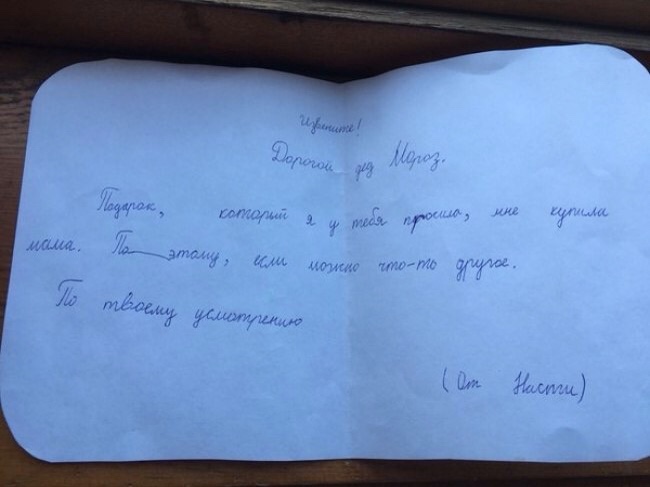 Извените!
Дорогой дед Мороз.
Подарок, который я у тебя просила, мне купила
мама. По этому, если можно что-то другое.
По твоему усмотрению
(От Насти)